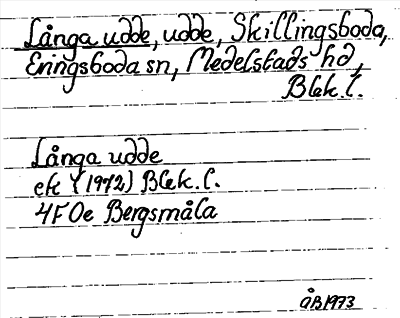 Långa udde, udde, Skillingsboda,
Eringsboda sn, Medelstads hd,
Blek. l.
Långa udde
ek (1972) Blek. l.
4F 0e Bergsmåla
ÅB1973